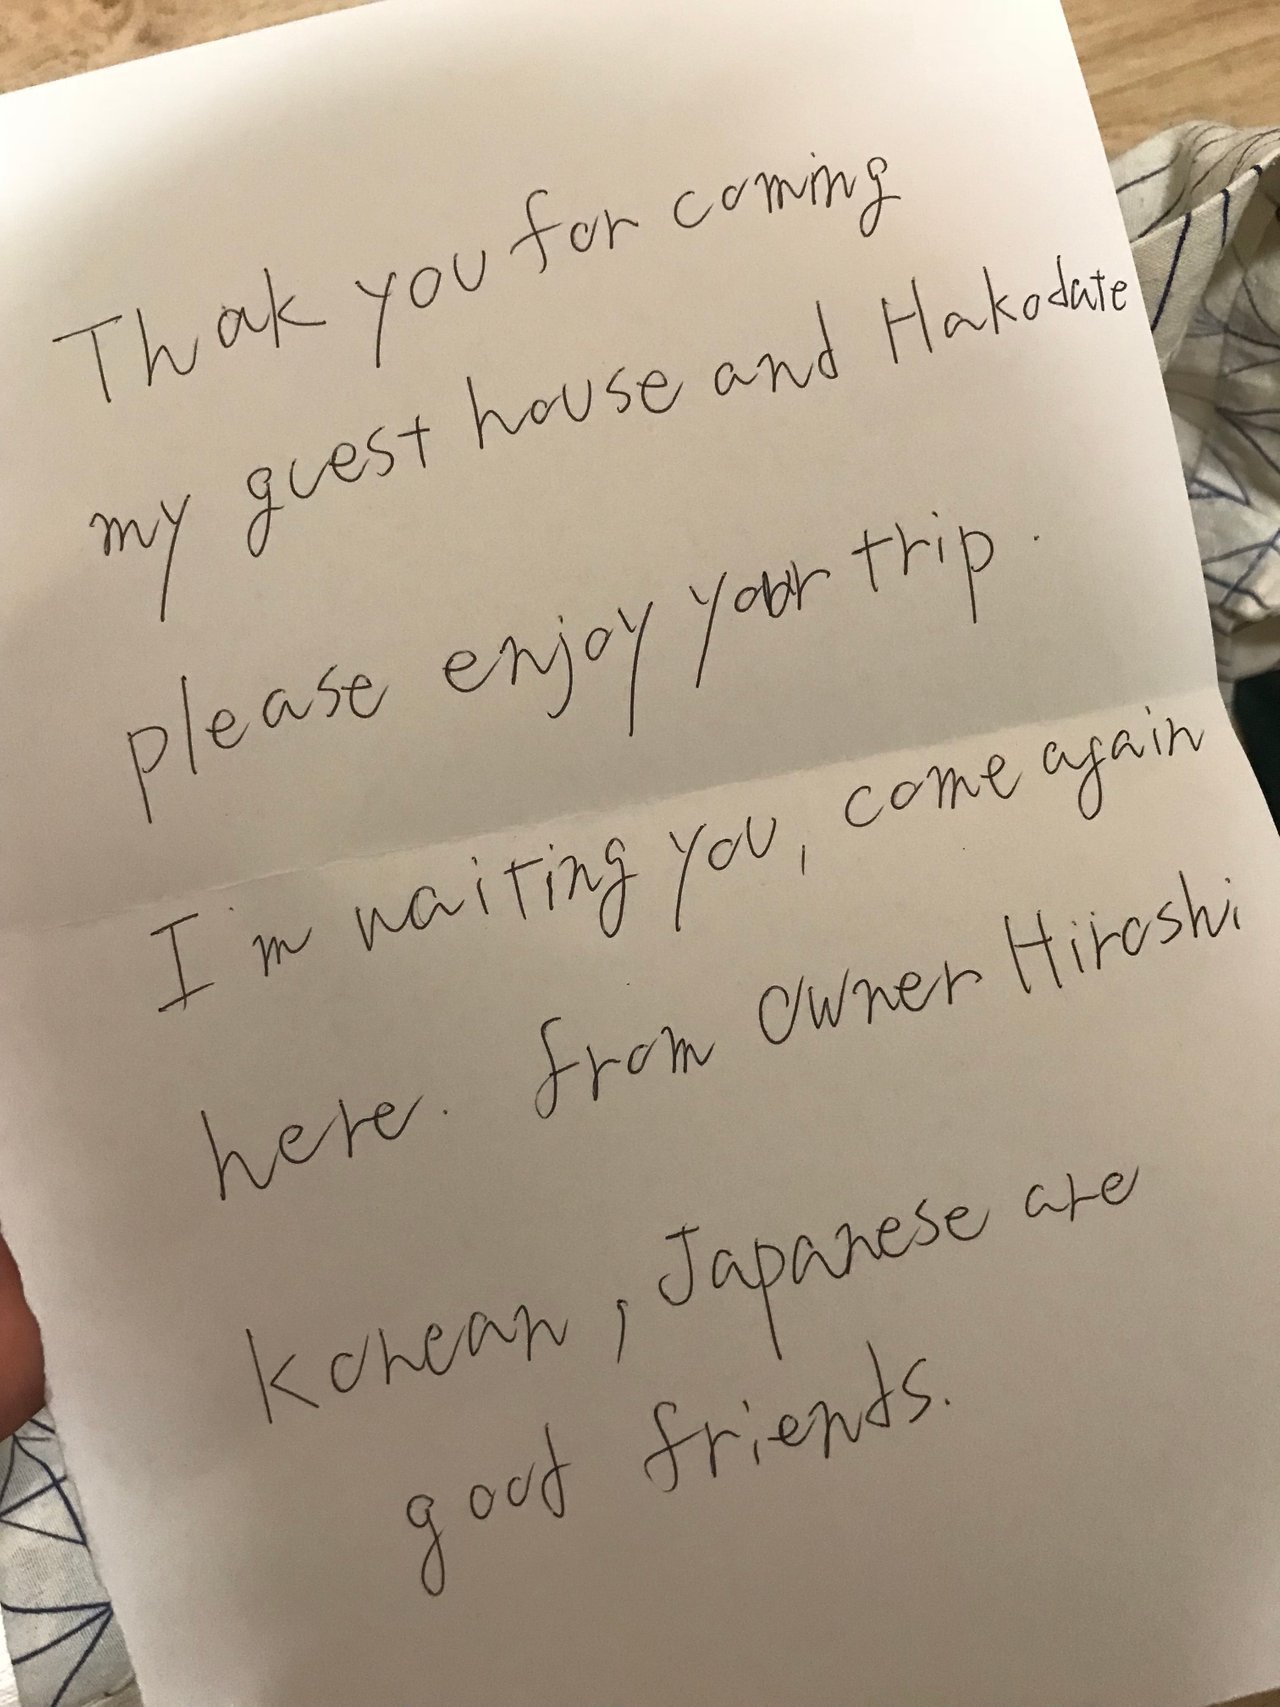 Thak you for coming
my guest house and Hakodate
please enjoy your trip.
I'm waiting you, come again
here. from owner Hiroshi
Korean, Japanese are
good friends.